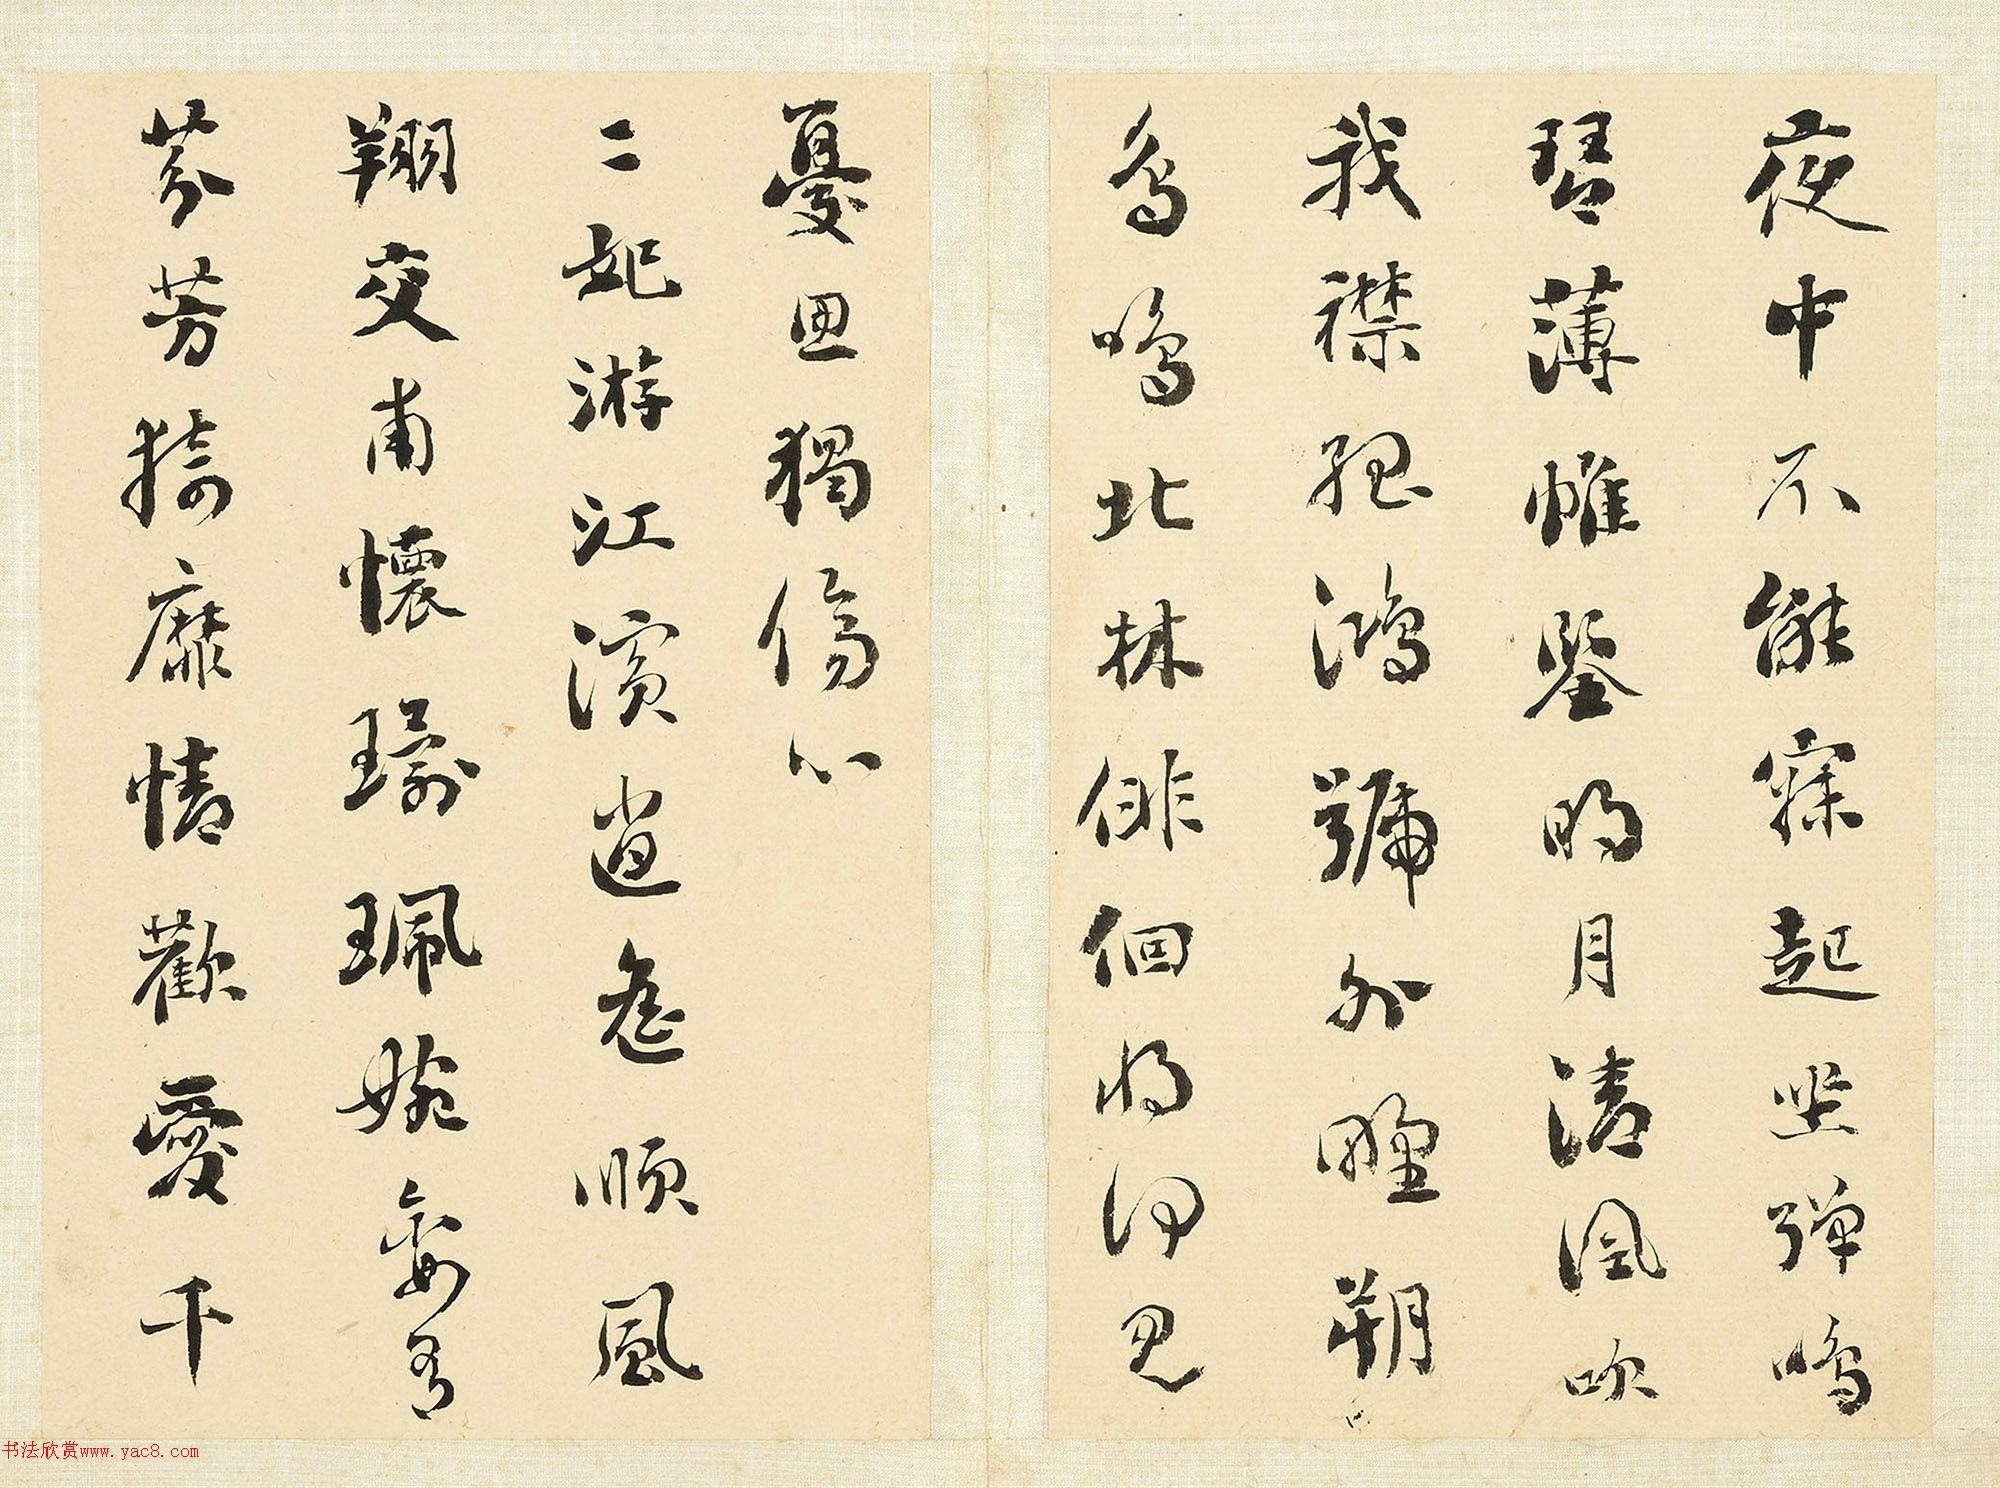 夜中不能寐起坐彈鳴
琴薄帷鑒明月清風吹
我襟孤鴻號外野朔
鳥鳴北林俳佪將何見
憂思獨傷心
二妃游江濱逍遙順風
翔交甫懷瑜珮婉孌有
芬芳猗靡情歡愛千
书法欣赏www.yac8.com